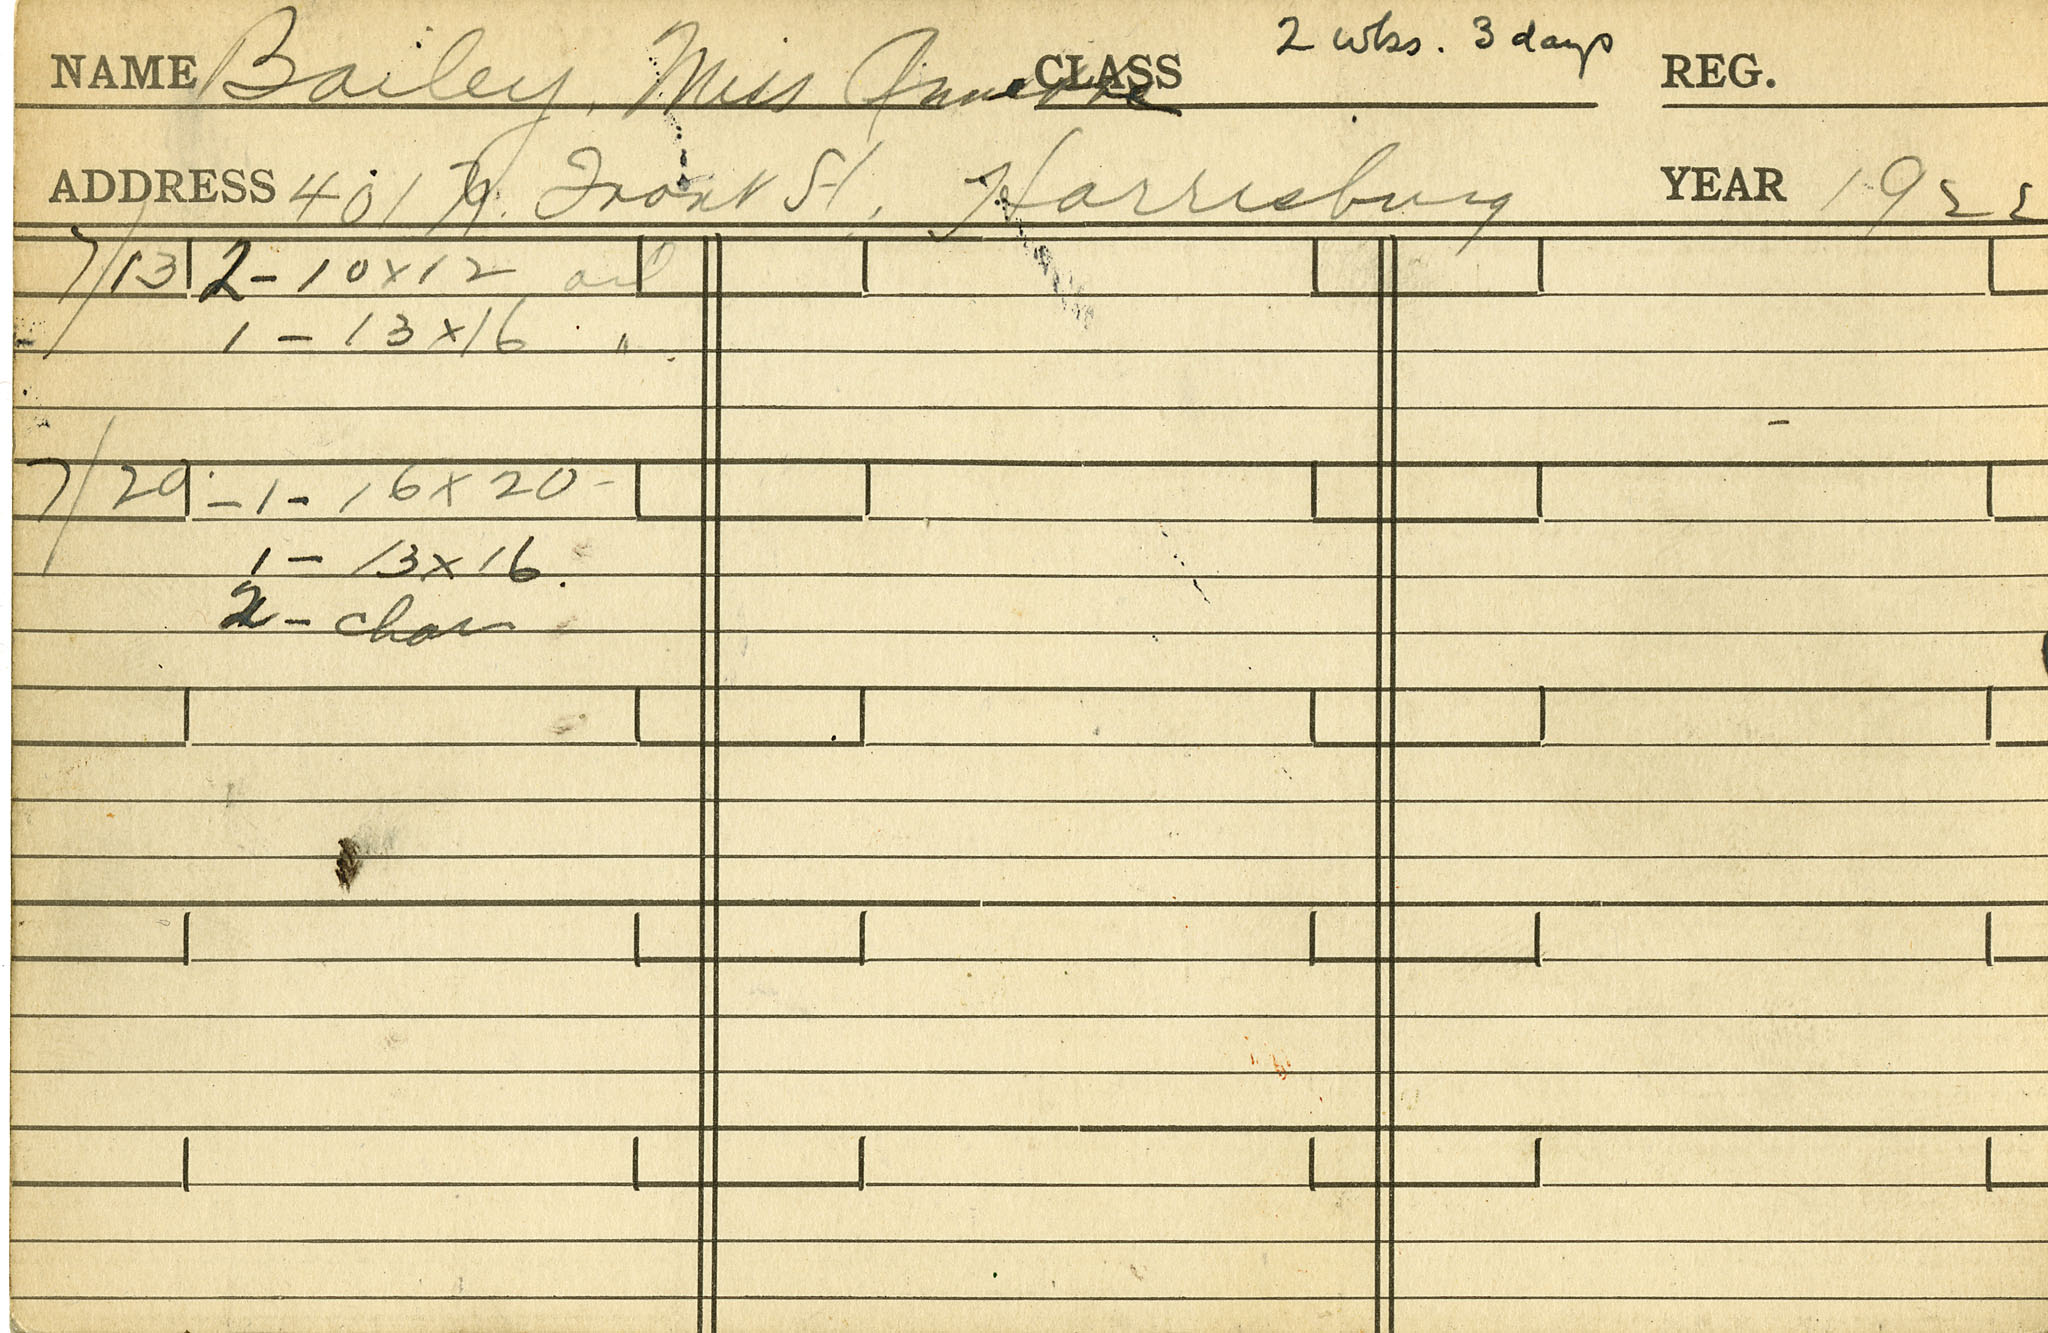 NAME Bailey, Miss Annette CLASS 2 wks. 3 days REG.
ADDRESS 401 N. Front St. Harrisburg YEAR 1922
7/13 2 - 10 x 12 oil
1 - 13 x 16 "
7/20 - 1 - 16 x 20 -
1 - 13 x 16.
2 - char